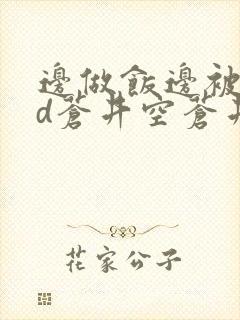 邊做飯邊被
d蒼井空蒼井
花家公子